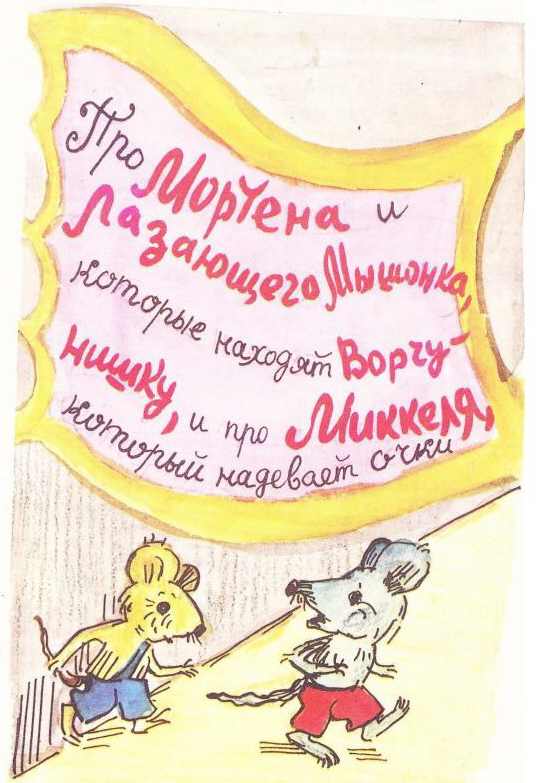 Про Мортена и
Лазающего Мышонка,
которые находят Ворчу-
нишку, и про Миккеля,
который надевает очки